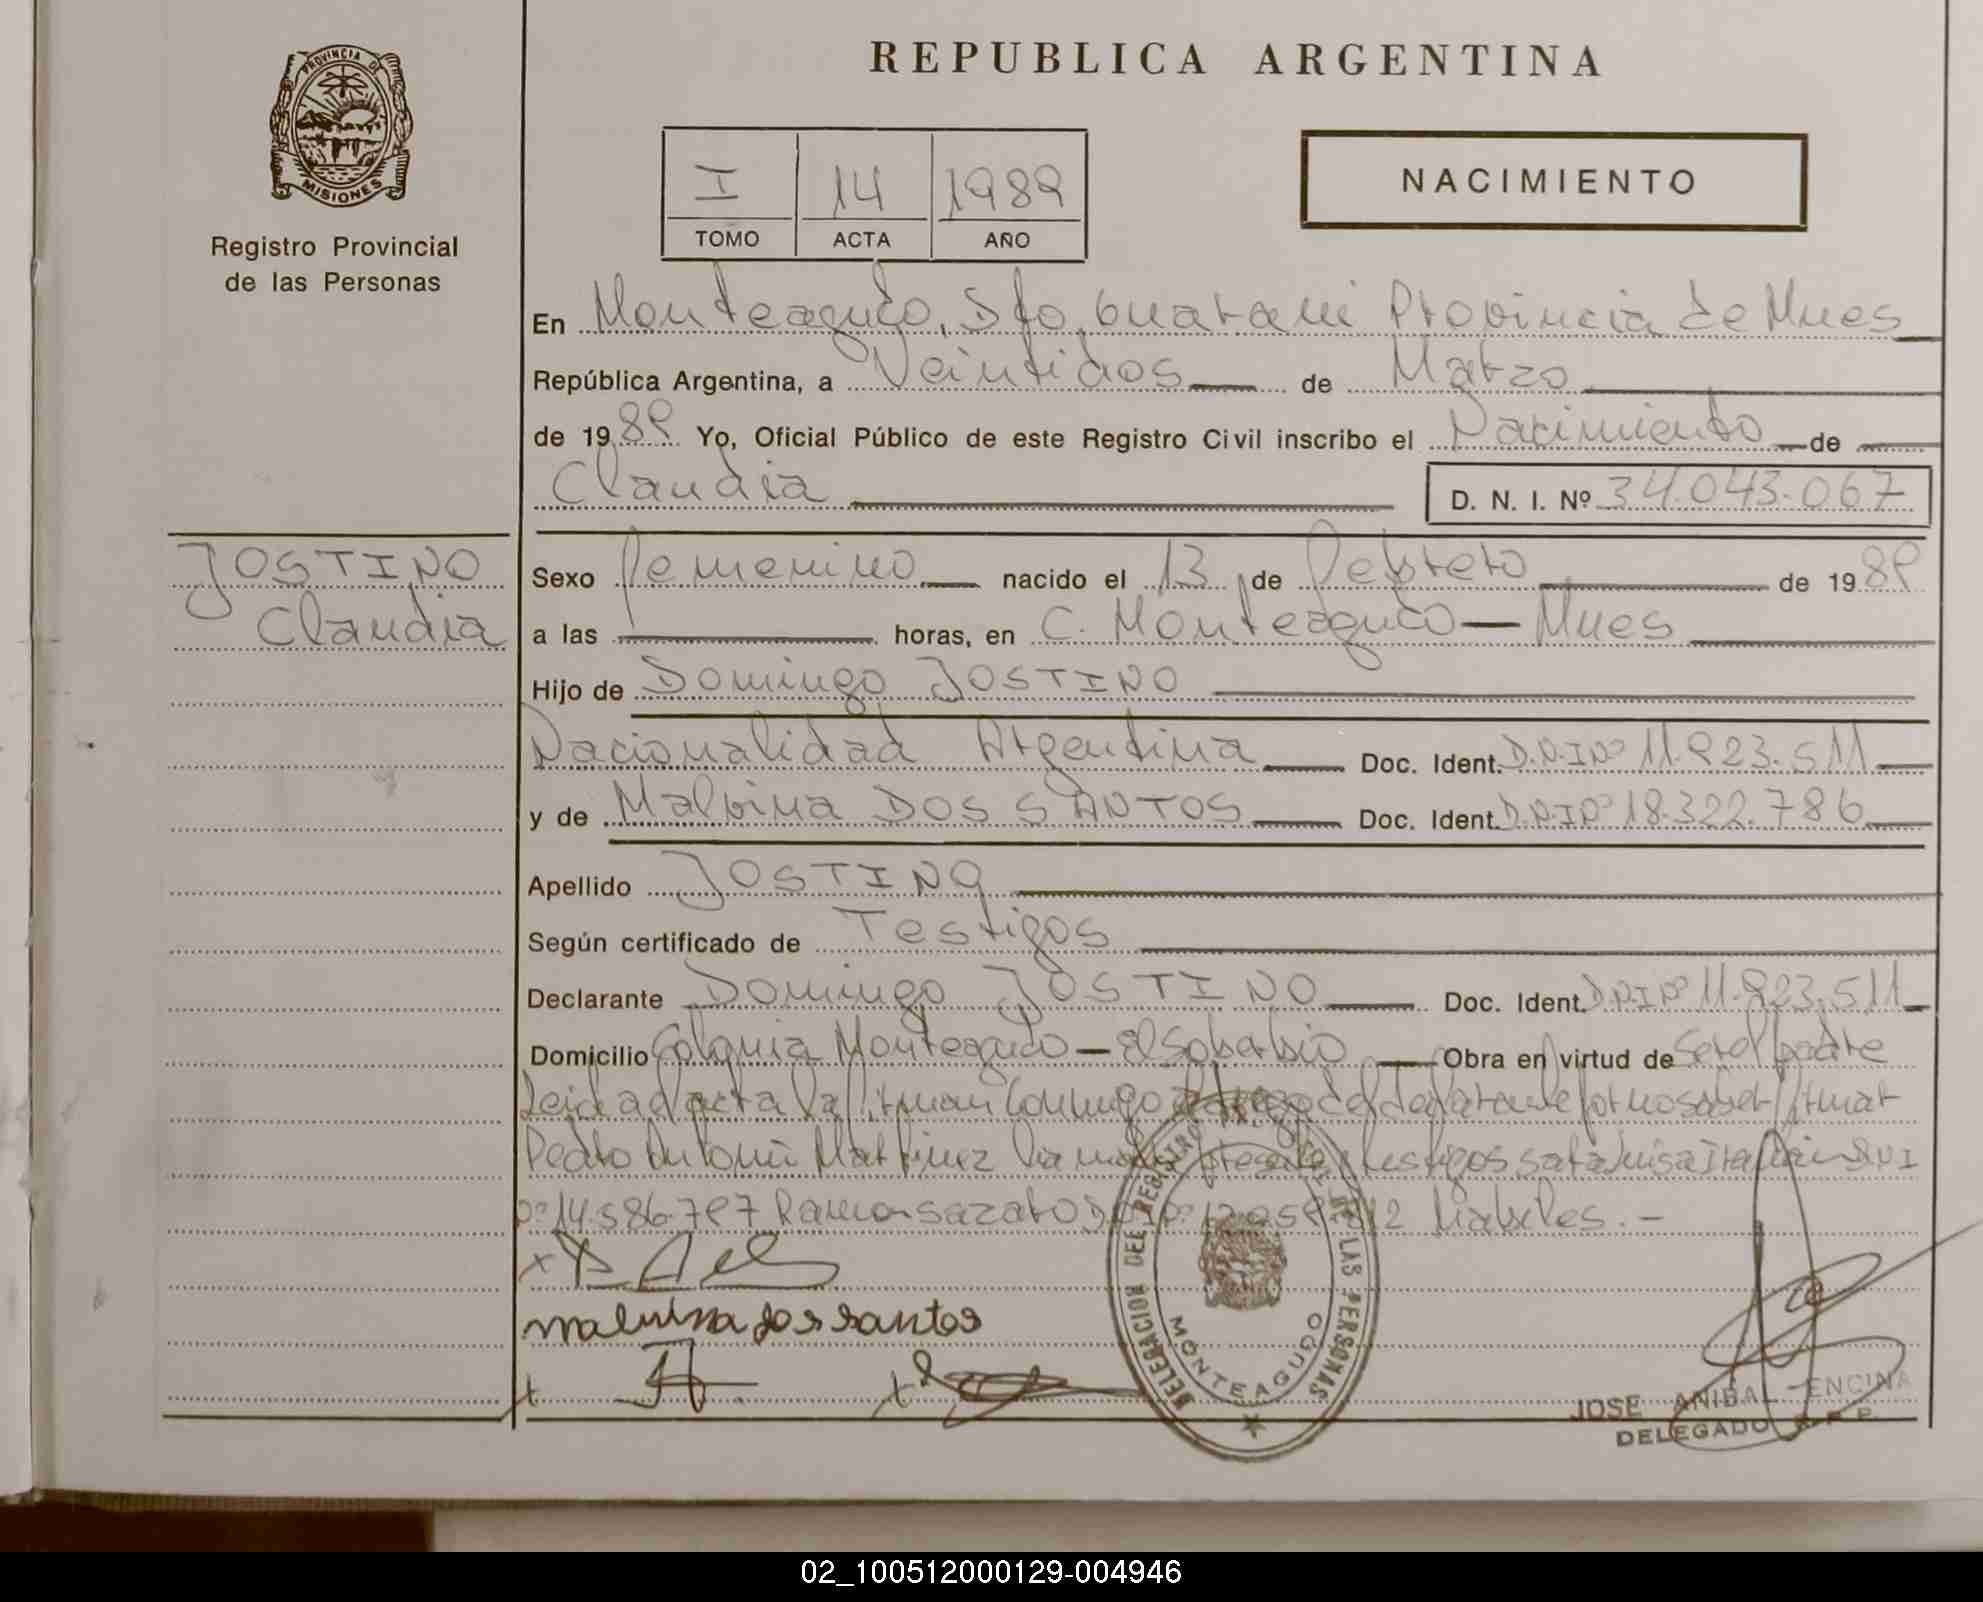 PROVINCIA DE
MISIONES
Registro Provincial
de las Personas
REPUBLICA ARGENTINA
I 14 1989
TOMO ACTA AÑO
NACIMIENTO
En Monteagudo, Dto. Guarani Provincia de Mnes
República Argentina, a Veintidos de Marzo
de 1989 Yo, Oficial Público de este Registro Civil inscribo el Nacimiento de
Claudia D. N. I. Nº 34.043.067
JOSTINO
Claudia
Sexo Femenino nacido el 13 de Febrero de 1989
a las horas, en C. Monteagudo — Mnes
Hijo de Domingo JOSTINO
Nacionalidad Argentina Doc. Ident. D.N.I Nº 11.923.511
y de Malvina DOS SANTOS Doc. Ident. D.N.I Nº 18.322.786
Apellido JOSTINO
Según certificado de Testigos
Declarante Domingo JOSTINO Doc. Ident. D.N.I Nº 11.923.511
Domicilio Colonia Monteagudo — El Soberbio Obra en virtud de Ser el padre
Leida el acta la firman conmigo a ruego del declarante por no saber firmar
Pedro Antonio Martinez testigos
Nº 14.586.797 Ramon habiles.-
malvina dos santos
DELEGACION DEL REGISTRO PROVINCIAL DE LAS PERSONAS
MONTEAGUDO
JOSE ANIBAL ENCINA
DELEGADO R. P. P.
02_100512000129-004946